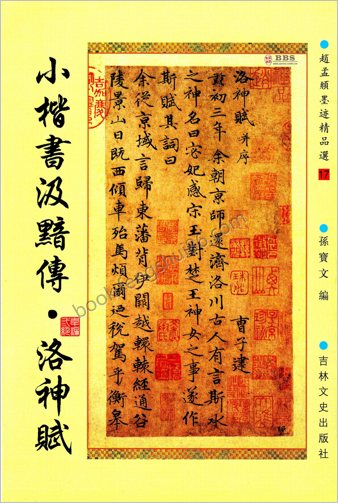 趙孟頫墨迹精品選 17
孫寶文 編
吉林文史出版社
BBS
洛神賦 并序 曹子建
黃初三年余朝京師還濟洛川古人有言斯水
之神名曰宓妃感宋玉對楚王神女之事遂作
斯賦其詞曰
余從京域言歸東藩背伊闕越轘轅經通谷
陵景山日既西傾車殆馬煩爾迺稅駕乎衡皋
小楷書汲黯傳·洛神賦